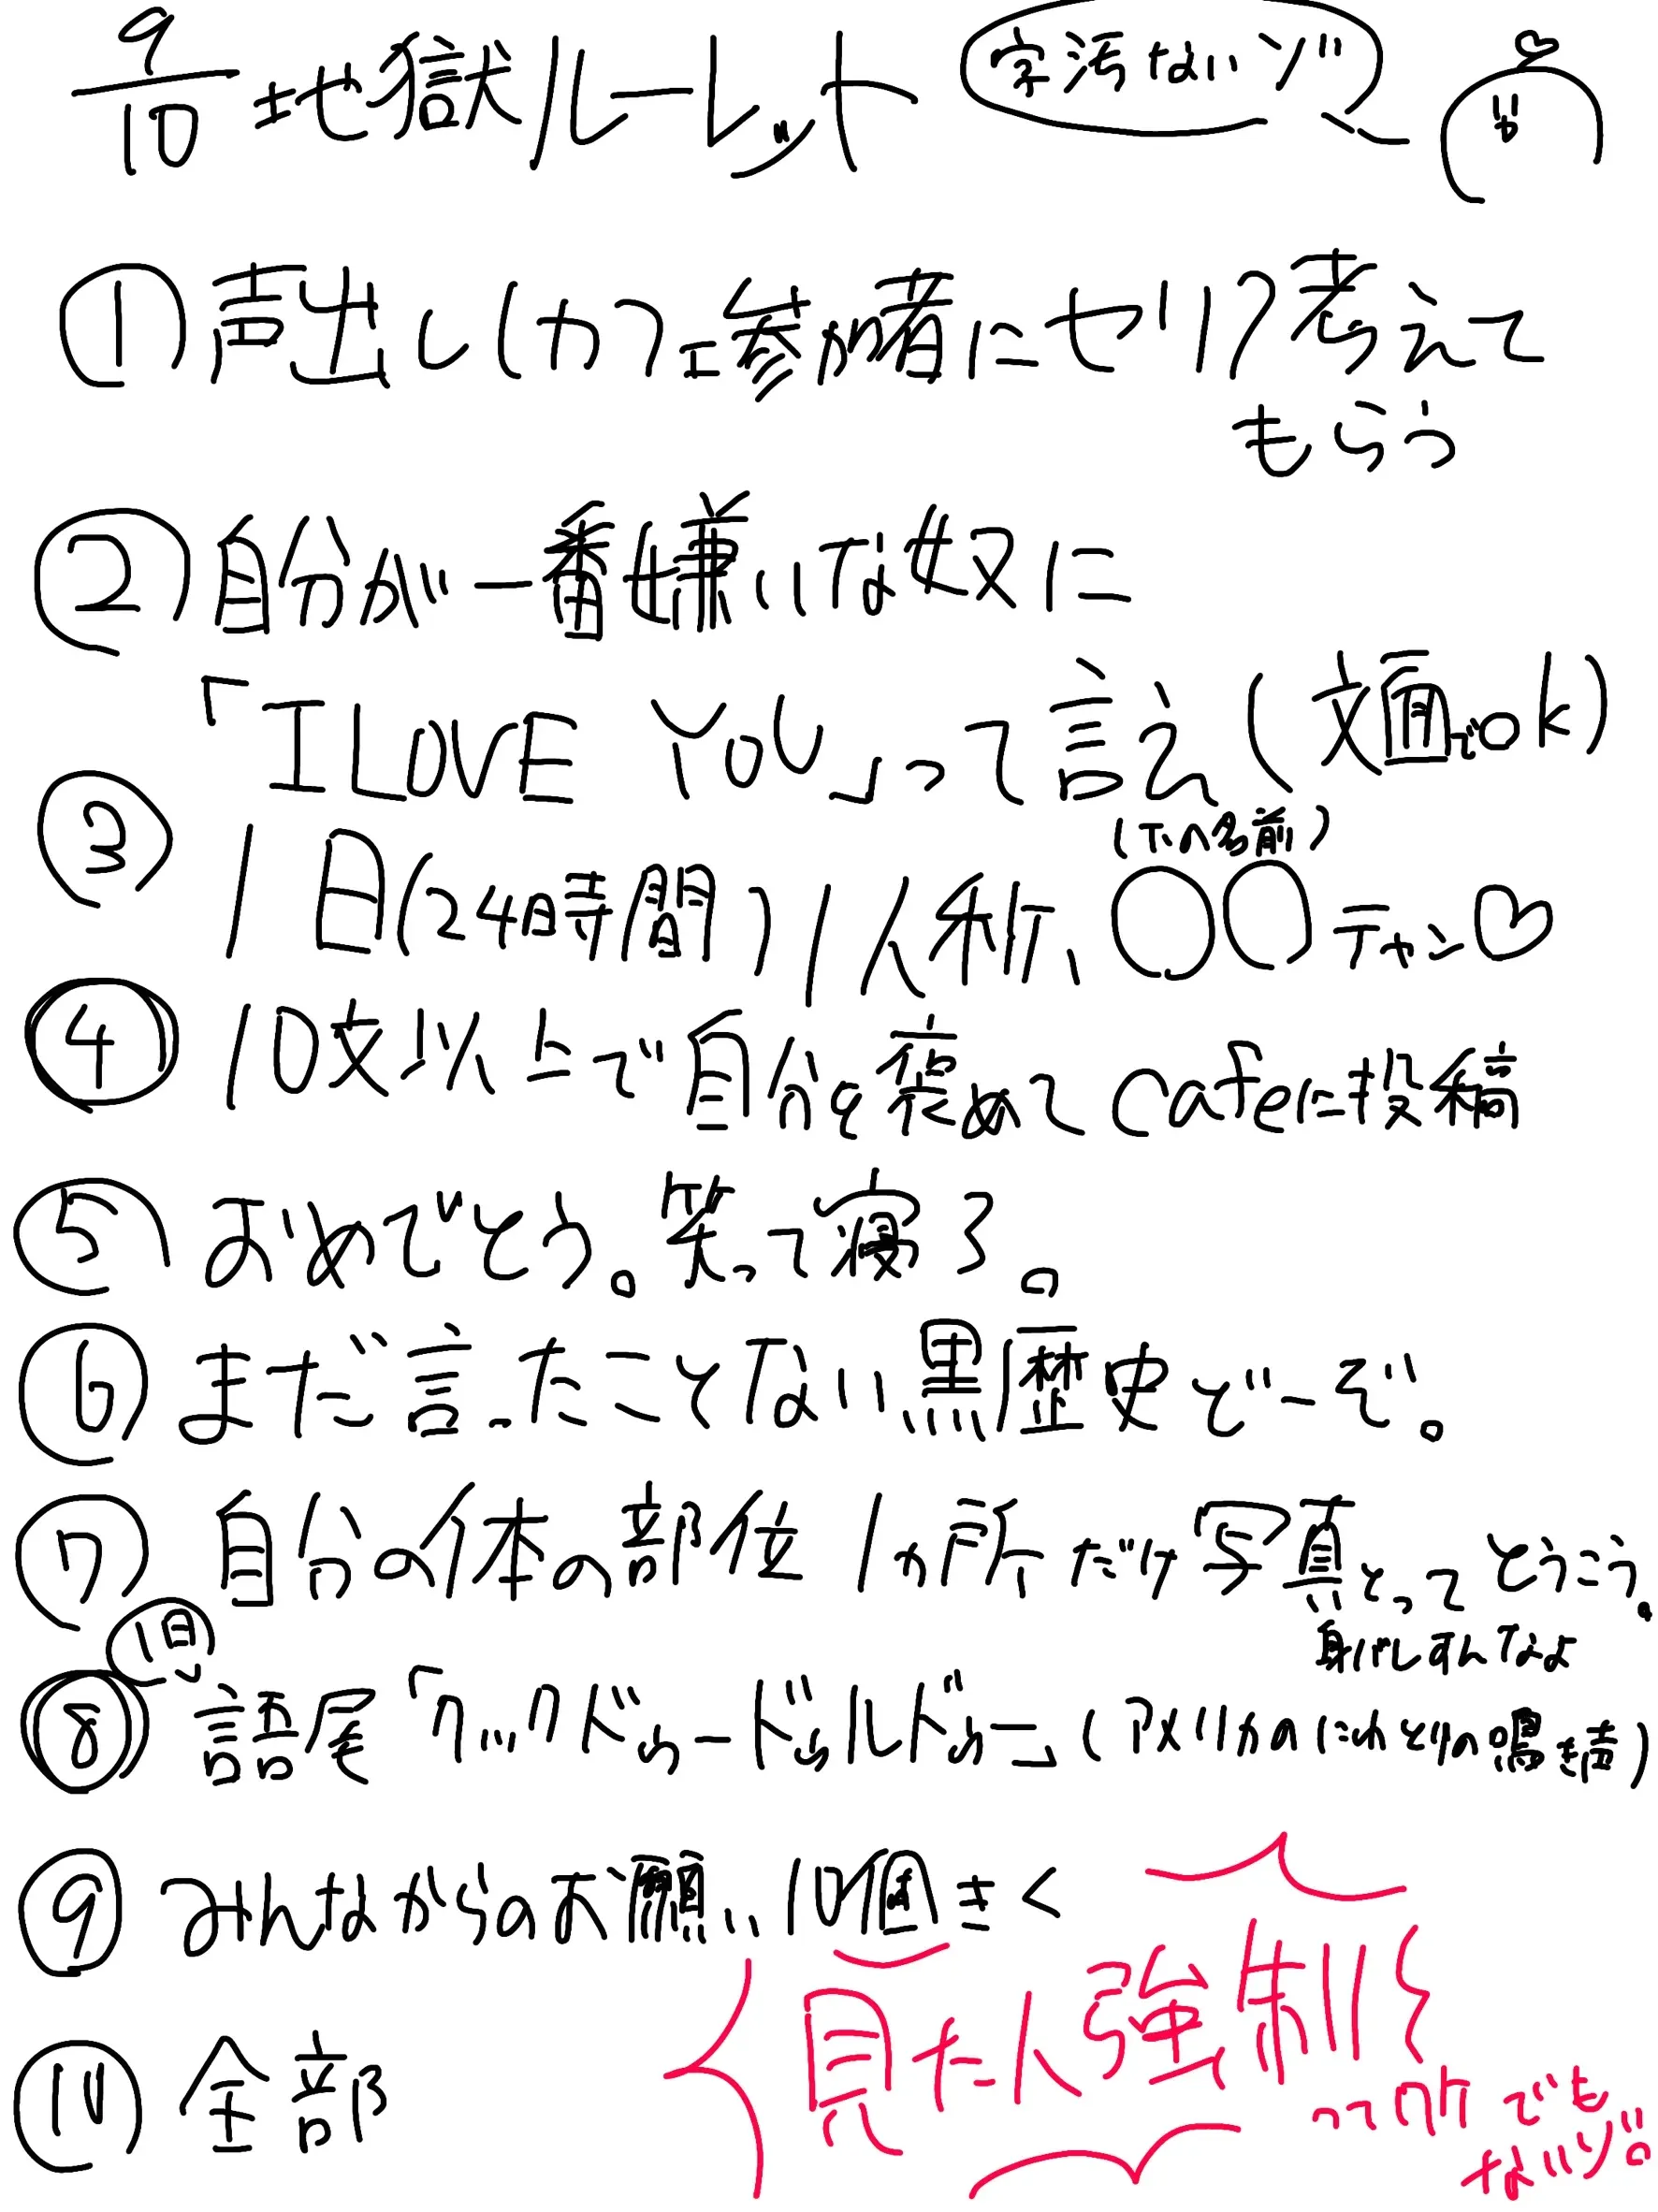 9/10 地獄ルーレット 字汚ないゾ
①声出し(カフェ参加者にセリフ考えて
もらう
②自分が一番嫌いな奴に
「I LOVE YOU」って言え(文面でok)
(下の名前)
③1日(24時間)1人称、〇〇チャン♡
④10文以上で自分を褒めてcafeに投稿
⑤おめでとう。笑って寝ろ。
⑥まだ言ったことない黒歴史どーぞ。
⑦自分の体の部位1か所だけ写真とってどうこう。
身バレすんなよ
1日
⑧語尾「クックドゥードゥルドゥー」(アメリカのにわとりの鳴き声)
⑨みんなからのお願い10個きく
見た人強制
⑩全部
って訳でも
ないゾ!!